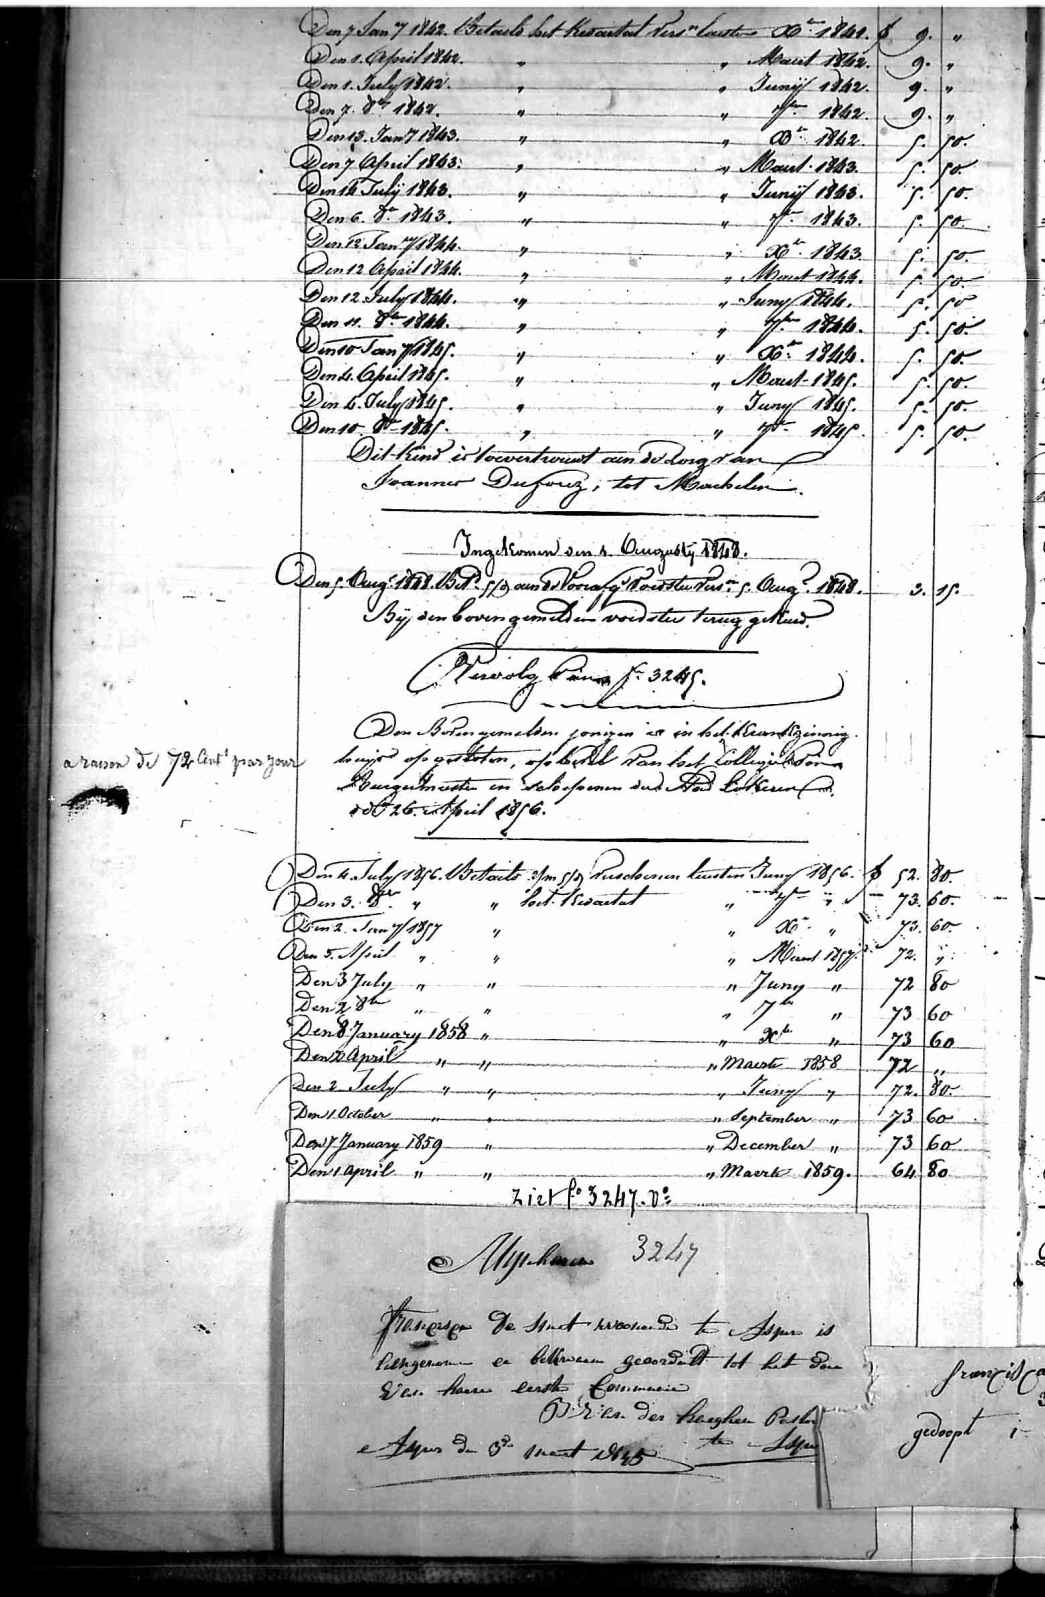 Den 7 Jan^y 1842. Betaelt het kwartael vers^n laesten X^ber 1841. f 9. "
Den 1. April 1842. " " Maert 1842. 9. "
Den 1. July 1842. " " Junij 1842. 9. "
Den 7. 8^ber 1842. " " 7^ber 1842. 9. "
Den 13. Jan^y 1843. " " X^ber 1842. 5. 50.
Den 7 April 1843. " " Maert 1843. 5. 50.
Den 14 Julij 1843. " " Junij 1843. 5. 50.
Den 6. 8^ber 1843. " " 7^ber 1843. 5. 50.
Den 12 Jan^y 1844. " " X^ber 1843. 5. 50.
Den 12 April 1844. " " Maert 1844. 5. 50.
Den 12 July 1844. " " Juny 1844. 5. 50
Den 11. 8^ber 1844. " " 7^ber 1844. 5. 50.
Den 10 Jan^y 1845. " " X^ber 1844. 5. 50.
Den 4. April 1845. " " Maert 1845. 5. 50.
Den 4. July 1845. " " Juny 1845. 5. 50.
Den 10. 8^ber 1845. " " 7^ber 1845. 5. 50.
Dit kind is toevertrouwt aen de zorg van
Joannes Dufourz, tot Machelen.
Ingekomen den 1. Augusty 1848.
Den 5. Aug^t 1848. Bet^t aen de voedster vers^n 5. Aug^t 1848. 3. 15.
Bij den bovengemelden voedster terug gekeerd.
Vervolg van f^o 3245.
Den Bovengemelden jongen is in het krankzinnig
huijs opgesloten, op bevel van het Collegie van
Burgemeester en schepenen der Stad Lokeren
d^o 26. April 1856.
a raison de 72 Cent^s par jour
Den 4 July 1856. Betaelt verschenen laesten Juny 1856. f 52. 80.
Den 3. 8^ber " " het kwartael " 7^ber " 73. 60.
Den 2. Jan^y 1857 " " X^ber " 73. 60
Den 3. April " " " Maert 1857. 72. "
Den 3 July " " " Juny " 72 80
Den 2 8^ber " " " 7^ber " 73 60
Den 8 January 1858 " " X^ber " 73 60
Den 2 April " " " Maerte 1858 72 "
Den 2 July " " " Juny " 72. 80.
Den 1 October " " " September " 73 60
Den 7 January 1859 " " December " 73 60
Den 1 april " " " Maerte 1859. 64 80
Ziet f^o 3247. v^o
3247
De Smet woonende te Asper is
aengenomen en bekwaem geoordeelt tot het doen
van haere eerste Communie
der haeghen Pastor
Asper den 3^de maert 1845 te Asper
francisca
gedoopt